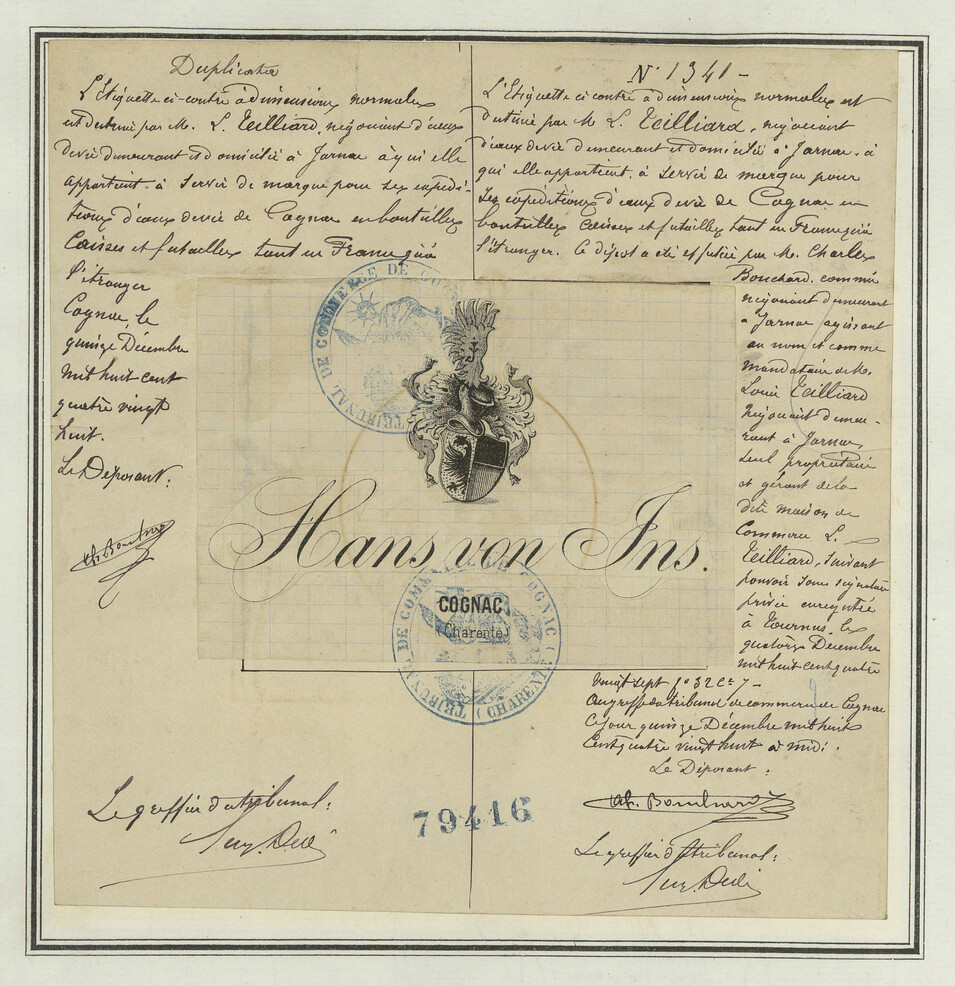 Duplicata
L'Etiquette ci-contre à dimensions normales
est destiné par M. L. Teilliard, négociant d'eaux
devie demeurant et domicilié à Jarnac à qui elle
appartient. à servir de marque pour ses expédi-
tions d'eaux devie de Cognac en bouteilles
Caisses et futailles tant en France qu'à
l'étranger
Cognac, le
quinze Décembre
mil huit cent
quatre vingt
huit.
Le Déposant:
Ch. Bouchard
Le greffier du tribunal:
N° 1341 -
L'Etiquette ci contre à dimensions normales est
destiné par M L. Teilliard, négociant
d'eaux devie demeurant et domicilié à Jarnac. à
qui elle appartient. à servir de marque pour
ses expéditions d'eaux devie de Cognac en
bouteilles caisses et futailles tant en France qu'à
l'étranger. Ce dépot a été effectué par M. Charles
Bouchard, commis
négociant demeurant
à Jarnac agissant
au nom et comme
mandataire de M.
Louis Teilliard
Négociant demeu-
rant à Jarnac,
seul propriétaire
et gérant de la
dite maison de
Commerce L.
Teilliard, suivant
pouvoir sous signature
privée enregistré
à Tournus, le
quatorze Décembre
mil huit cent quatre
vingt sept f° 32 Ce 7 -
Au greffe du tribunal de commerce de Cognac
Ce jour quinze Décembre mil huit
Cent quatre vingt huit à midi.
Le Déposant:
Ch. Bouchard
Le greffier du tribunal:
TRIBUNAL DE COMMERCE DE COGNAC
Hans von Ins.
COGNAC
(Charente)
TRIBUNAL DE COMMERCE DE COGNAC (CHARENTE)
79416